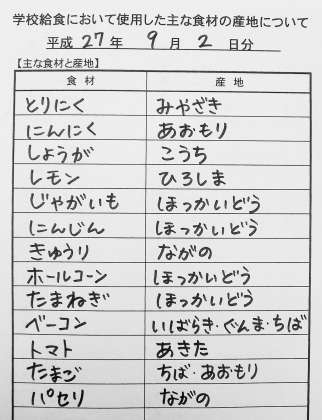 学校給食において使用した主な食材の産地について
平成 27 年 9 月 2 日分
【主な食材と産地】
食材 産地
とりにく みやざき
にんにく あおもり
しょうが こうち
レモン ひろしま
じゃがいも ほっかいどう
にんじん ほっかいどう
きゅうり ながの
ホールコーン ほっかいどう
たまねぎ ほっかいどう
ベーコン いばらき・ぐんま・ちば
トマト あきた
たまご ちば・あおもり
パセリ ながの